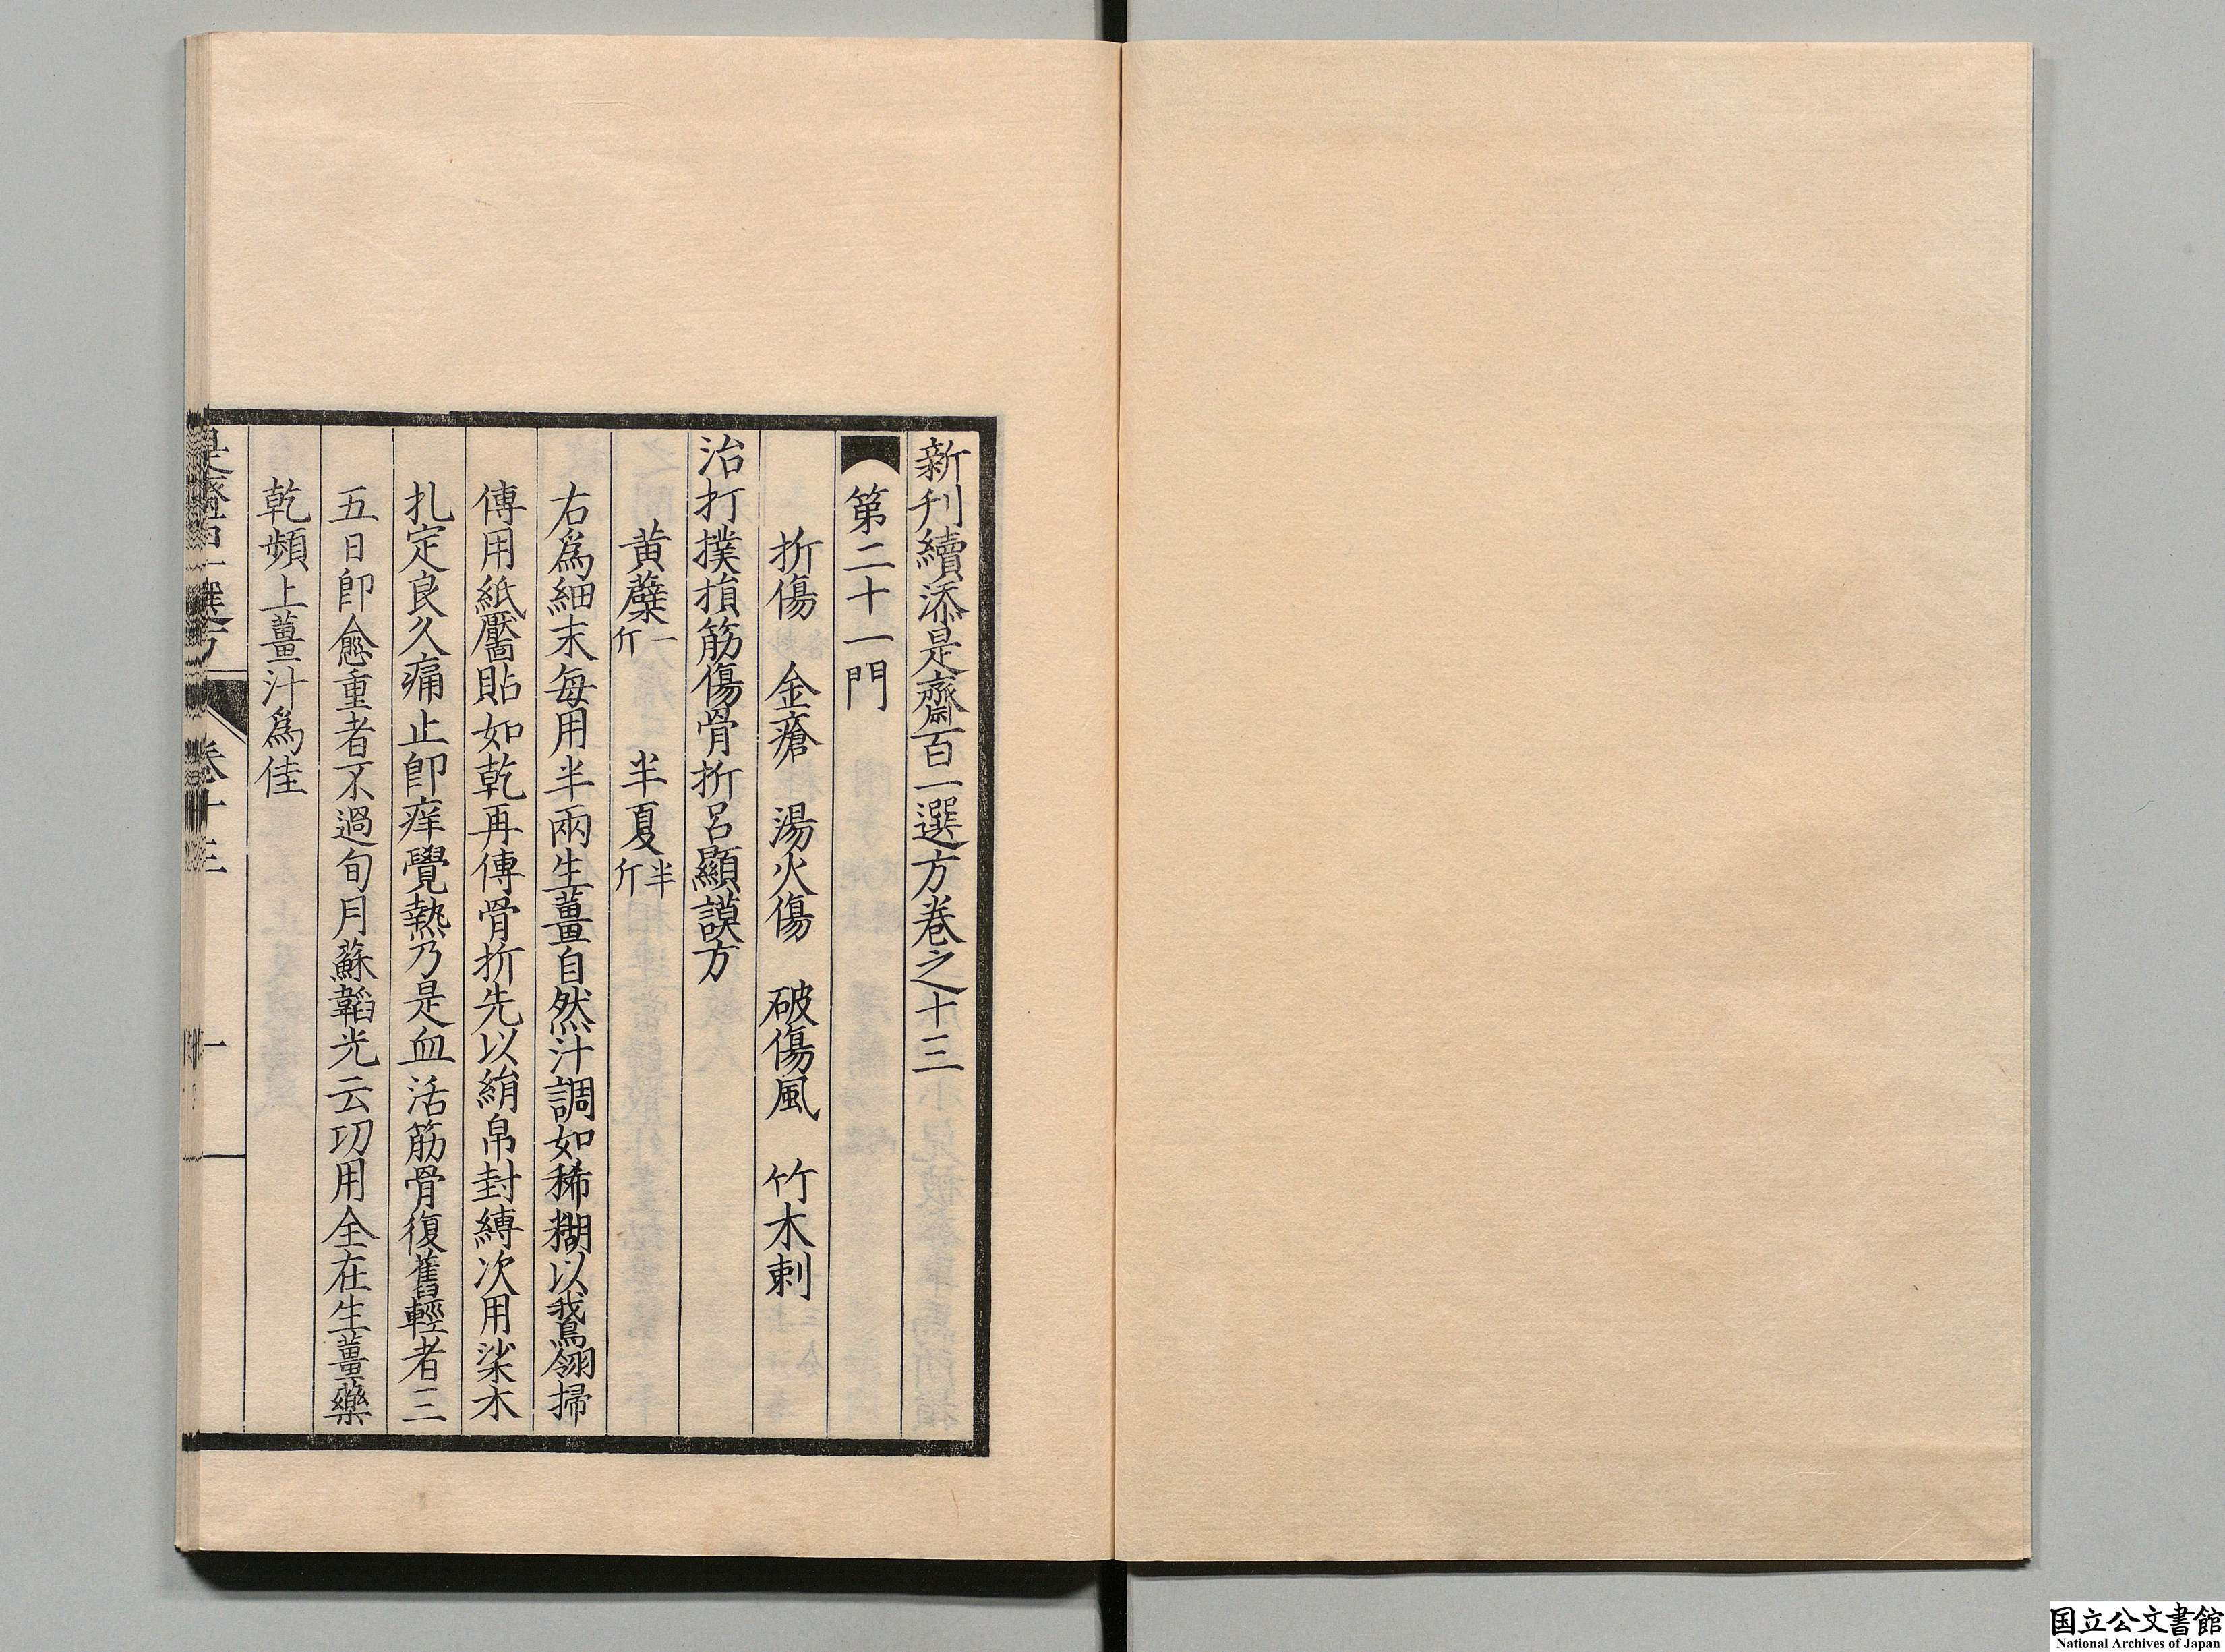 新刊續添是齋百一選方卷之十三
第二十一門
折傷　金瘡　湯火傷　破傷風　竹木刺
治打撲損筋傷骨折呂顯謨方
黄蘗一斤　半夏半斤
右爲細末每用半兩生薑自然汁調如稀糊以鵞翎掃
傅用紙靨貼如乾再傅骨折先以絹帛封縛次用柒木
扎定良久痛止卽痒覺熱乃是血活筋骨復舊輕者三
五日卽愈重者不過旬月蘇韜光云功用全在生薑藥
乾頻上薑汁爲佳
是齋百一選方　卷十三　一
国立公文書館
National Archives of Japan